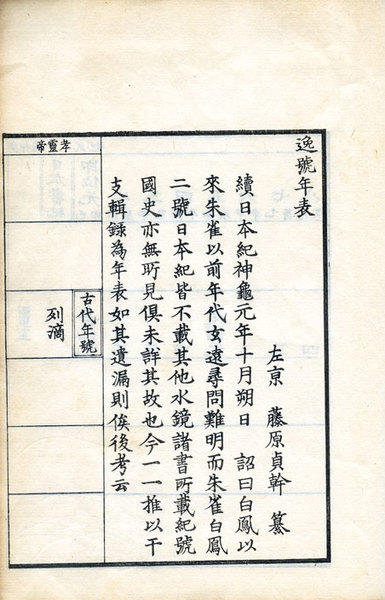 逸號年表
左京 藤原貞幹 纂
續日本紀神龜元年十月朔日 詔曰白鳳以
來朱雀以前年代玄遠尋問難明而朱雀白鳳
二號日本紀皆不載其他水鏡諸書所載紀號
國史亦無所見俱未詳其故也今一一推以干
支輯録為年表如其遺漏則俟後考云
孝靈帝
古代年號
列滴